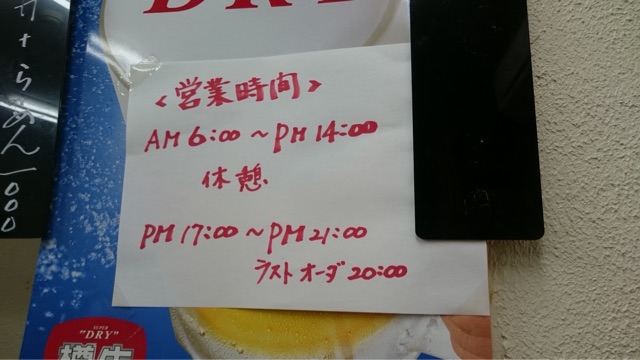 DRY
＜営業時間＞
AM 6:00 ～ PM 14:00
休憩
PM 17:00 ～ PM 21:00
ラストオーダ 20:00
らーめん 1000
SUPER
"DRY"
樽生